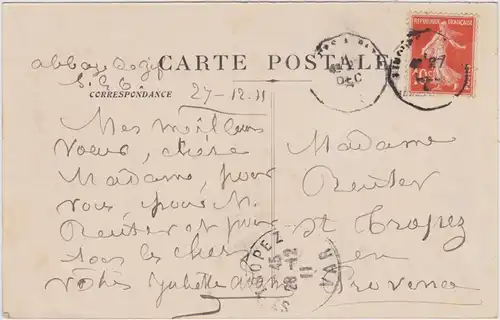 abbaye
CARTE POSTALE
CORRESPONDANCE
27-12.11
Mes meilleurs
vœux, chère
Madame, pour
vous, pour M.
Reuter et pour
tous les chers
vôtres Juliette
Madame
Reuter
St Tropez
en
Provence
REPUBLIQUE FRANÇAISE
10c
DEC
TROPEZ
VAR
45
28-12
11